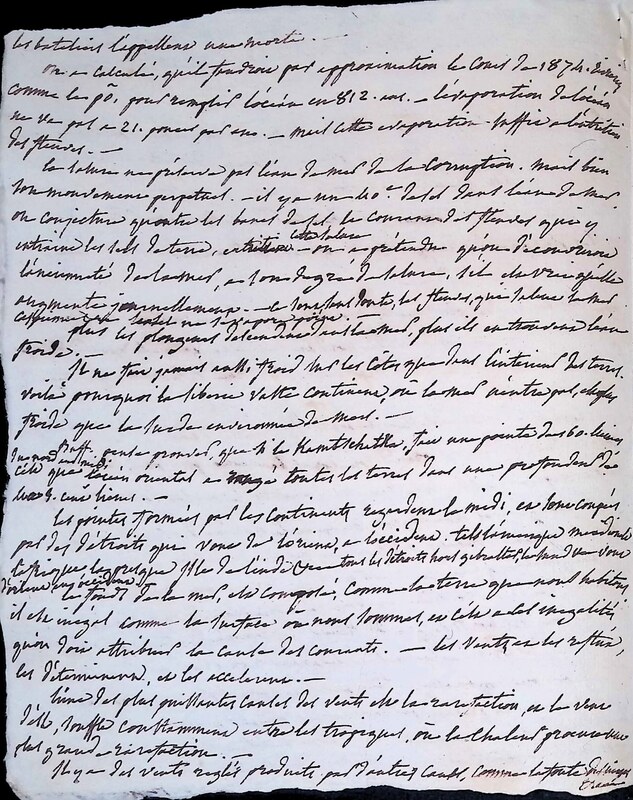 les bateliers l'appellent une morte. —
On a calculé, qu'il faudroit par approximation le cours de 1874. 
comme le pô, pour remplir l'océan en 812 ans. — l'évaporation de l'océan
ne va pas a 21. pouces par ans. — mais cette evaporation suffit a l'entretien
des fleuves. —
la salure ne préserve pas l'eau de mer de la corruption. mais bien
son mouvement perpetuel. — il y a un 40e. de sel dans l'eau de mer
on conjecture qu'outre les bancs de sel, le courant des fleuves qui y
entraine les sels de terre, cette salure — on a prétendu qu'on découvriroit
l'ancienneté de la mer, a son degré de salure, s'il est vrai qu'elle
augmente journellement. — ce sont sans doute, les fleuves, qui salent la mer
 le sel ne s'evapore point. —
plus les plongeurs descendent dans la mer, plus ils en trouvent l'eau
froide. —
Il ne fait jamais aussi froid sur les côtes que dans l'interieur des terres.
voilà pourquoi la siberie vaste continent, où la mer n'entre pas, est plus
froide que la suede environnée de mers. —
Buff. pense prouver, que si le Kamtschatka, fait une pointe de 60. lieues,
 du midi
c'est que l'océan oriental a rongé toutes les terres dans une profondeur de
 cent lieues. —
les pointes formées par les continents regardent le midi, et sont coupés
par des détroits qui vont de l'orient, a l'occident. tels l'amerique meridionale
l'afrique la presque Isle de l'inde &c. tous les détroits hors gibraltar, le sund vont
d'orient en occident
le fond de la mer, est composé, comme la terre que nous habitons
il est inegal comme la surface où nous sommes, et c'est a ces inegalités
qu'on doit attribuer la cause des courants. — les vents et les reflux,
les déterminent, et les accelerent. —
l'une des plus puissantes causes des vents est la rarefaction, et le vent
d'est, souffle constamment entre les tropiques, où la chaleur procure une
plus grande rarefaction. —
Il y a des vents reglés produits par d'autres causes, comme la fonte des neiges